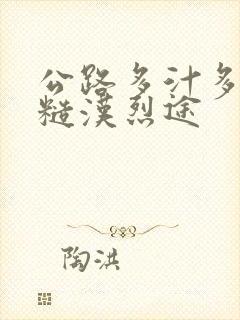 公路多汁多
糙漢烈途
陶洪